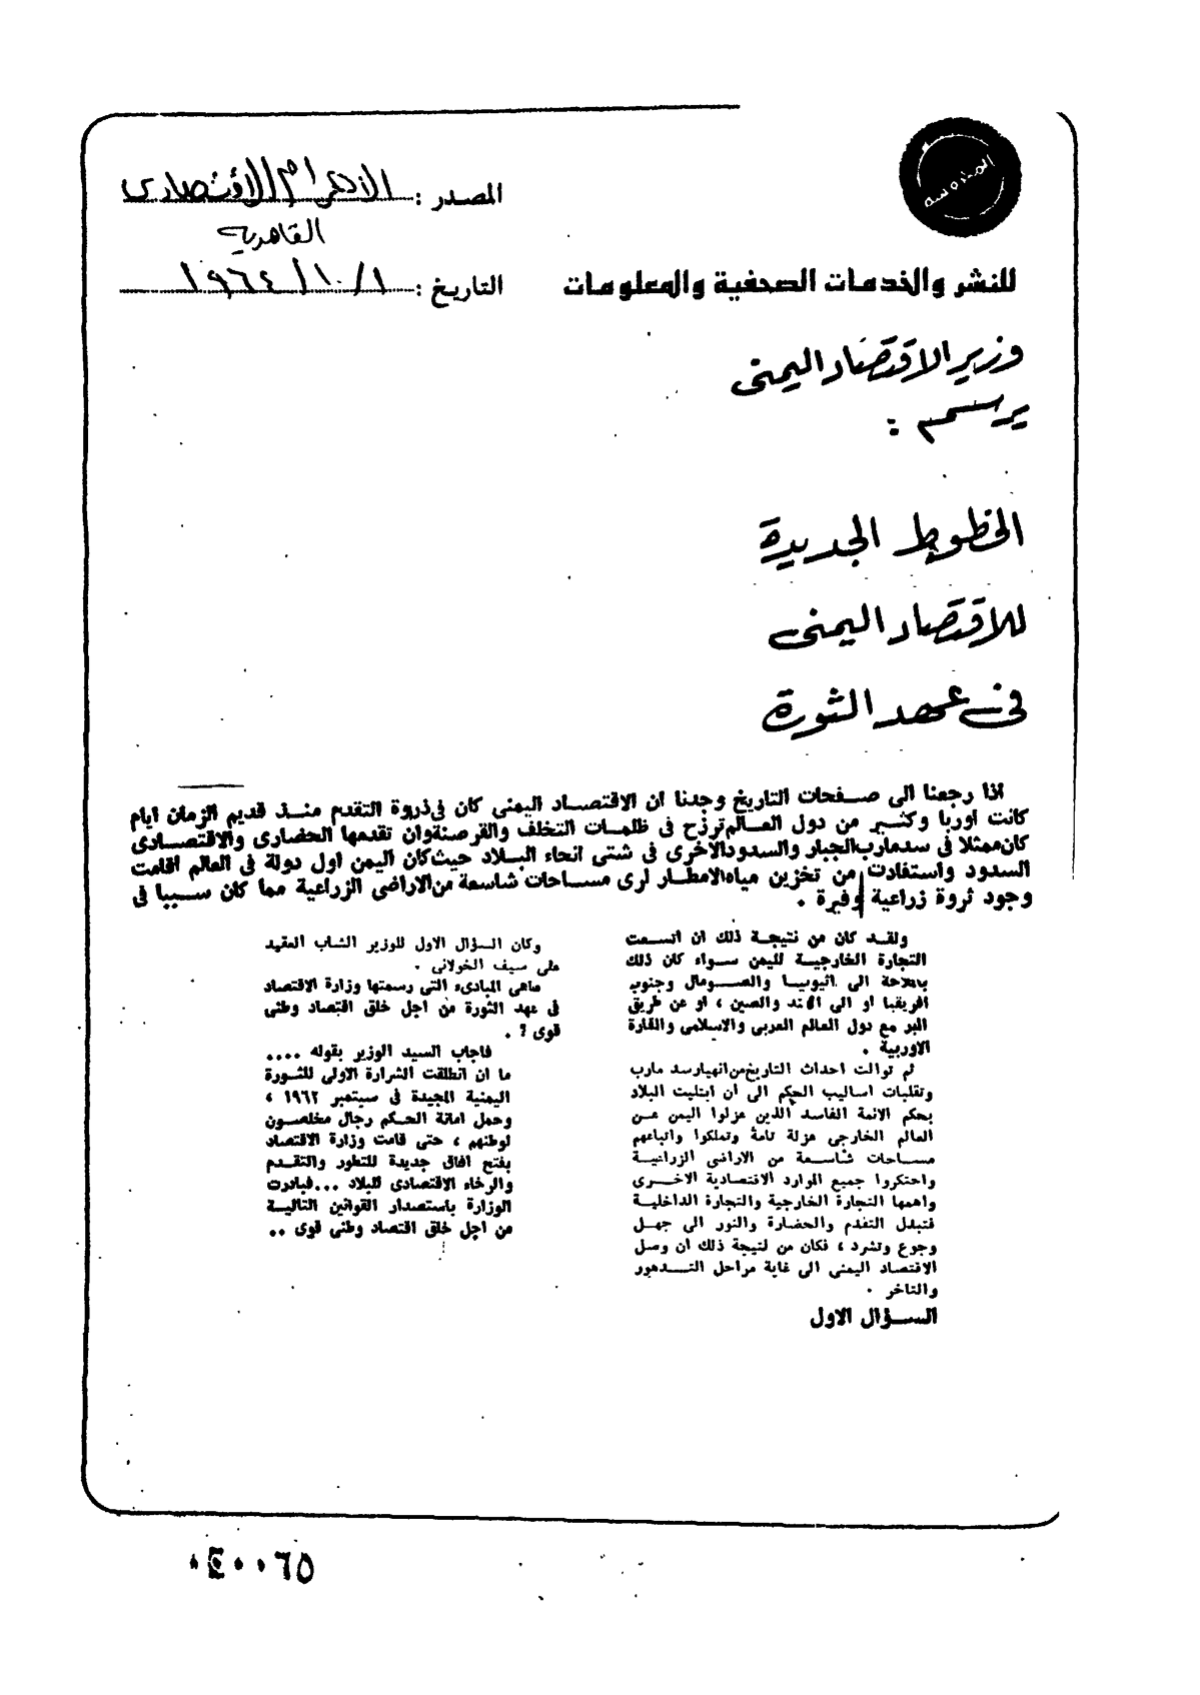 المدروسه
المصدر : الاهرام الاقتصادى
القاهرية
للنشر والخدمات الصحفية والمعلومات
التاريخ : ١/ ١٠/ ١٩٦٤
وزير الاقتصاد اليمنى
يرسم :
الخطوط الجديدة
للاقتصاد اليمنى
فى عهد الثورة
اذا رجعنا الى صفحات التاريخ وجدنا ان الاقتصاد اليمنى كان فى ذروة التقدم منذ قديم الزمان ايام
كانت اوربا وكثير من دول العالم ترزح فى ظلمات التخلف والقرصنة وان تقدمها الحضارى والاقتصادى
كان ممثلا فى سد مارب الجبار والسدود الاخرى فى شتى انحاء البلاد حيث كان اليمن اول دولة فى العالم اقامت
السدود واستفادت من تخزين مياه الامطار لرى مساحات شاسعة من الاراضى الزراعية مما كان سببا فى
وجود ثروة زراعية وفيرة .
ولقد كان من نتيجة ذلك ان اتسعت
التجارة الخارجية لليمن سواء كان ذلك
بالملاحة الى اثيوبيا والصومال وجنوب
افريقيا او الى الهند والصين ، او عن طريق
البر مع دول العالم العربى والاسلامى والقارة
الاوربية .
ثم توالت احداث التاريخ من انهيار سد مارب
وتقلبات اساليب الحكم الى ان ابتليت البلاد
بحكم الائمة الفاسد الذين عزلوا اليمن عن
العالم الخارجى عزلة تامة وتملكوا واتباعهم
مساحات شاسعة من الاراضى الزراعية
واحتكروا جميع الموارد الاقتصادية الاخرى
واهمها التجارة الخارجية والتجارة الداخلية
فتبدل التقدم والحضارة والنور الى جهل
وجوع وتشرد ، فكان من نتيجة ذلك ان وصل
الاقتصاد اليمنى الى غاية مراحل التدهور
والتاخر .
السؤال الاول
وكان السؤال الاول للوزير الشاب العقيد
على سيف الخولانى .
ماهى المبادىء التى رسمتها وزارة الاقتصاد
فى عهد الثورة من اجل خلق اقتصاد وطنى
قوى ؟ .
فاجاب السيد الوزير بقوله ....
ما ان انطلقت الشرارة الاولى للثورة
اليمنية المجيدة فى سبتمبر ١٩٦٢ ،
وحمل امانة الحكم رجال مخلصون
لوطنهم ، حتى قامت وزارة الاقتصاد
بفتح افاق جديدة للتطور والتقدم
والرخاء الاقتصادى للبلاد ... فبادرت
الوزارة باستصدار القوانين التالية
من اجل خلق اقتصاد وطنى قوى ..